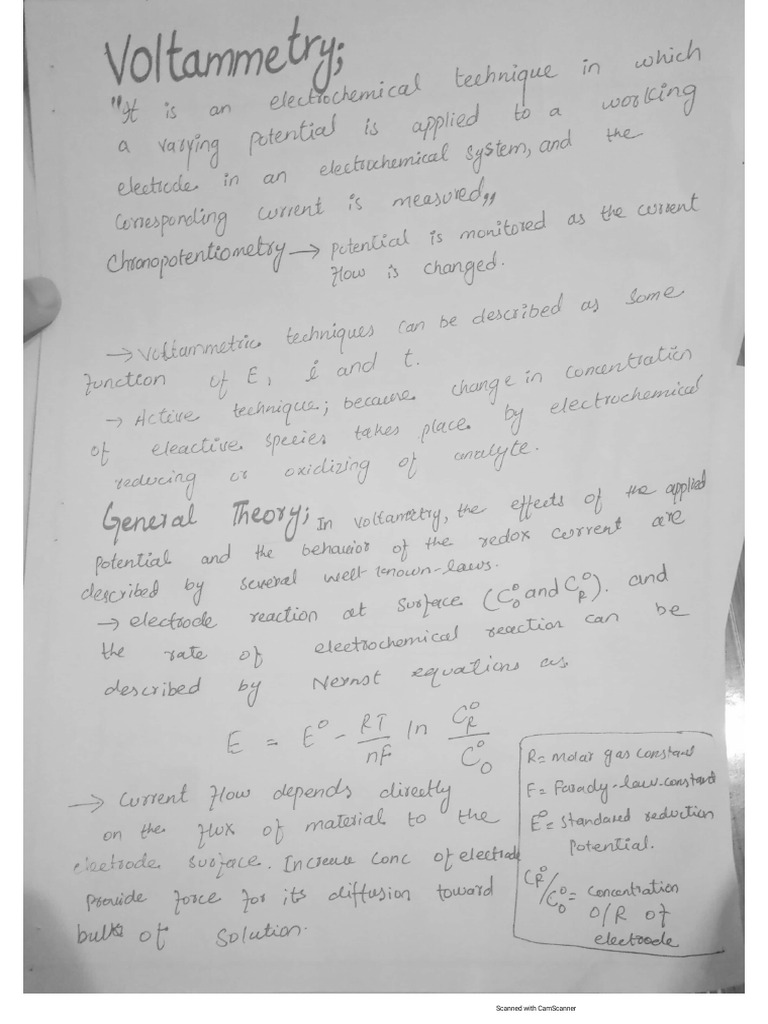 Voltammetry;
"It is an electrochemical technique in which
a varying potential is applied to a working
electrode in an electrochemical system, and the
corresponding current is measured,,
Chronopotentiometry → Potential is monitored as the current
flow is changed.
→ Voltammetric techniques can be described as some
function of E, i and t.
→ Active technique; because change in concentration
of eleactive species takes place by electrochemical
reducing or oxidizing of analyte.
General Theory; In voltametry, the effects of the applied
potential and the behavior of the redox current are
described by several well known-laws.
→ electrode reaction at surface (C°O and C°R). and
the rate of electrochemical reaction can be
described by Nernst equations as
E = E° - RT/nF ln C°R/C°O
→ Current flow depends directly
on the flux of material to the
electrode surface. Increase conc of electrode
provide force for its diffusion toward
bulk of solution.
R = molar gas constant
F = Farady-law-constant
E° = Standared reduction
Potential.
C°R/C°O = concentration
O/R of
electrode
Scanned with CamScanner